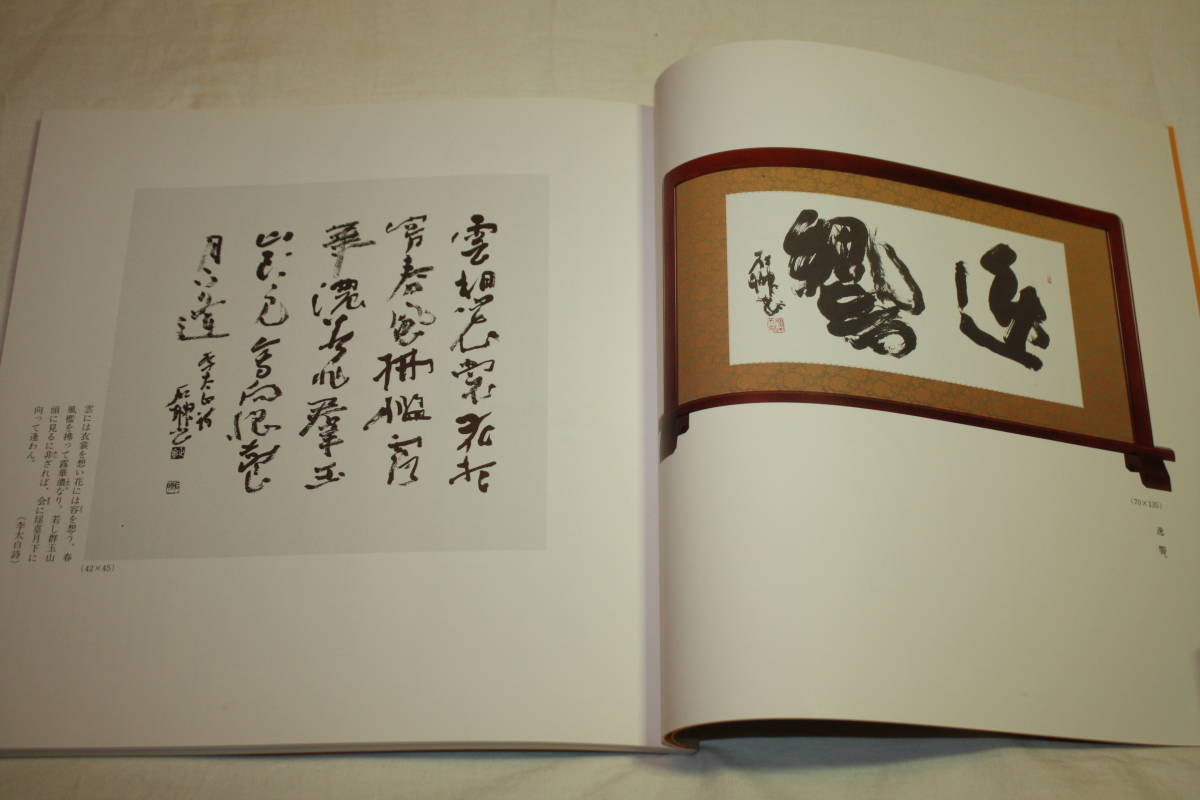 雲想衣裳花想
容春風拂檻露
華濃若非羣玉
山頭見會向瑶臺
月下逢
李太白詩
雲には衣裳を想い花には容を想う。春
風檻を拂って露華濃なり。若し群玉山
頭に見るに非ざれば、会に瑶臺月下に
向って逢わん。
（李太白詩）
(42×45)
逸響
(70×135)
逸響